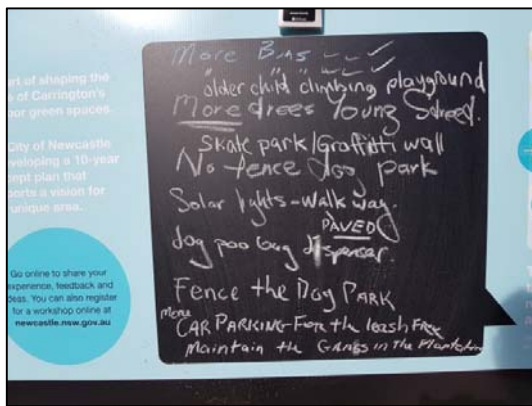 rt of shaping the
e of Carrington's
or green spaces.
City of Newcastle
veloping a 10-year
cept plan that
ports a vision for
unique area.
Go online to share your
experience, feedback and
deas. You can also register
for a workshop online at
newcastle.nsw.gov.au
More Bins
"older child" climbing playground
More trees Young Street.
Skate park/Graffiti wall
No fence dog park
Solar lights - walk way.
PAVED
dog poo bag dispenser.
Fence the Dog PARK
more
CAR PARKING FOR the leash FREE
Maintain the GRASS in the Plantation